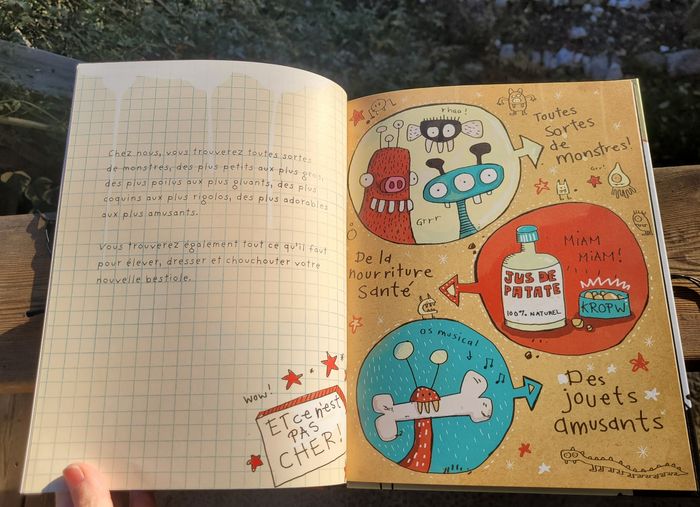 Chez nous, vous trouverez toutes sortes
de monstres, des plus petits aux plus gros,
des plus poilus aux plus gluants, des plus
coquins aux plus rigolos, des plus adorables
aux plus amusants.
Vous trouverez également tout ce qu'il faut
pour élever, dresser et chouchouter votre
nouvelle bestiole.
WOW!
ET ce n'est
PAS
CHER!
rhao!
Grrr
Toutes
sortes
de
monstres!
Grr!
De la
nourriture
santé
JUS DE
PATATE
100% NATUREL
MIAM
MIAM!
KROPW
os musical
Des
jouets
amusants